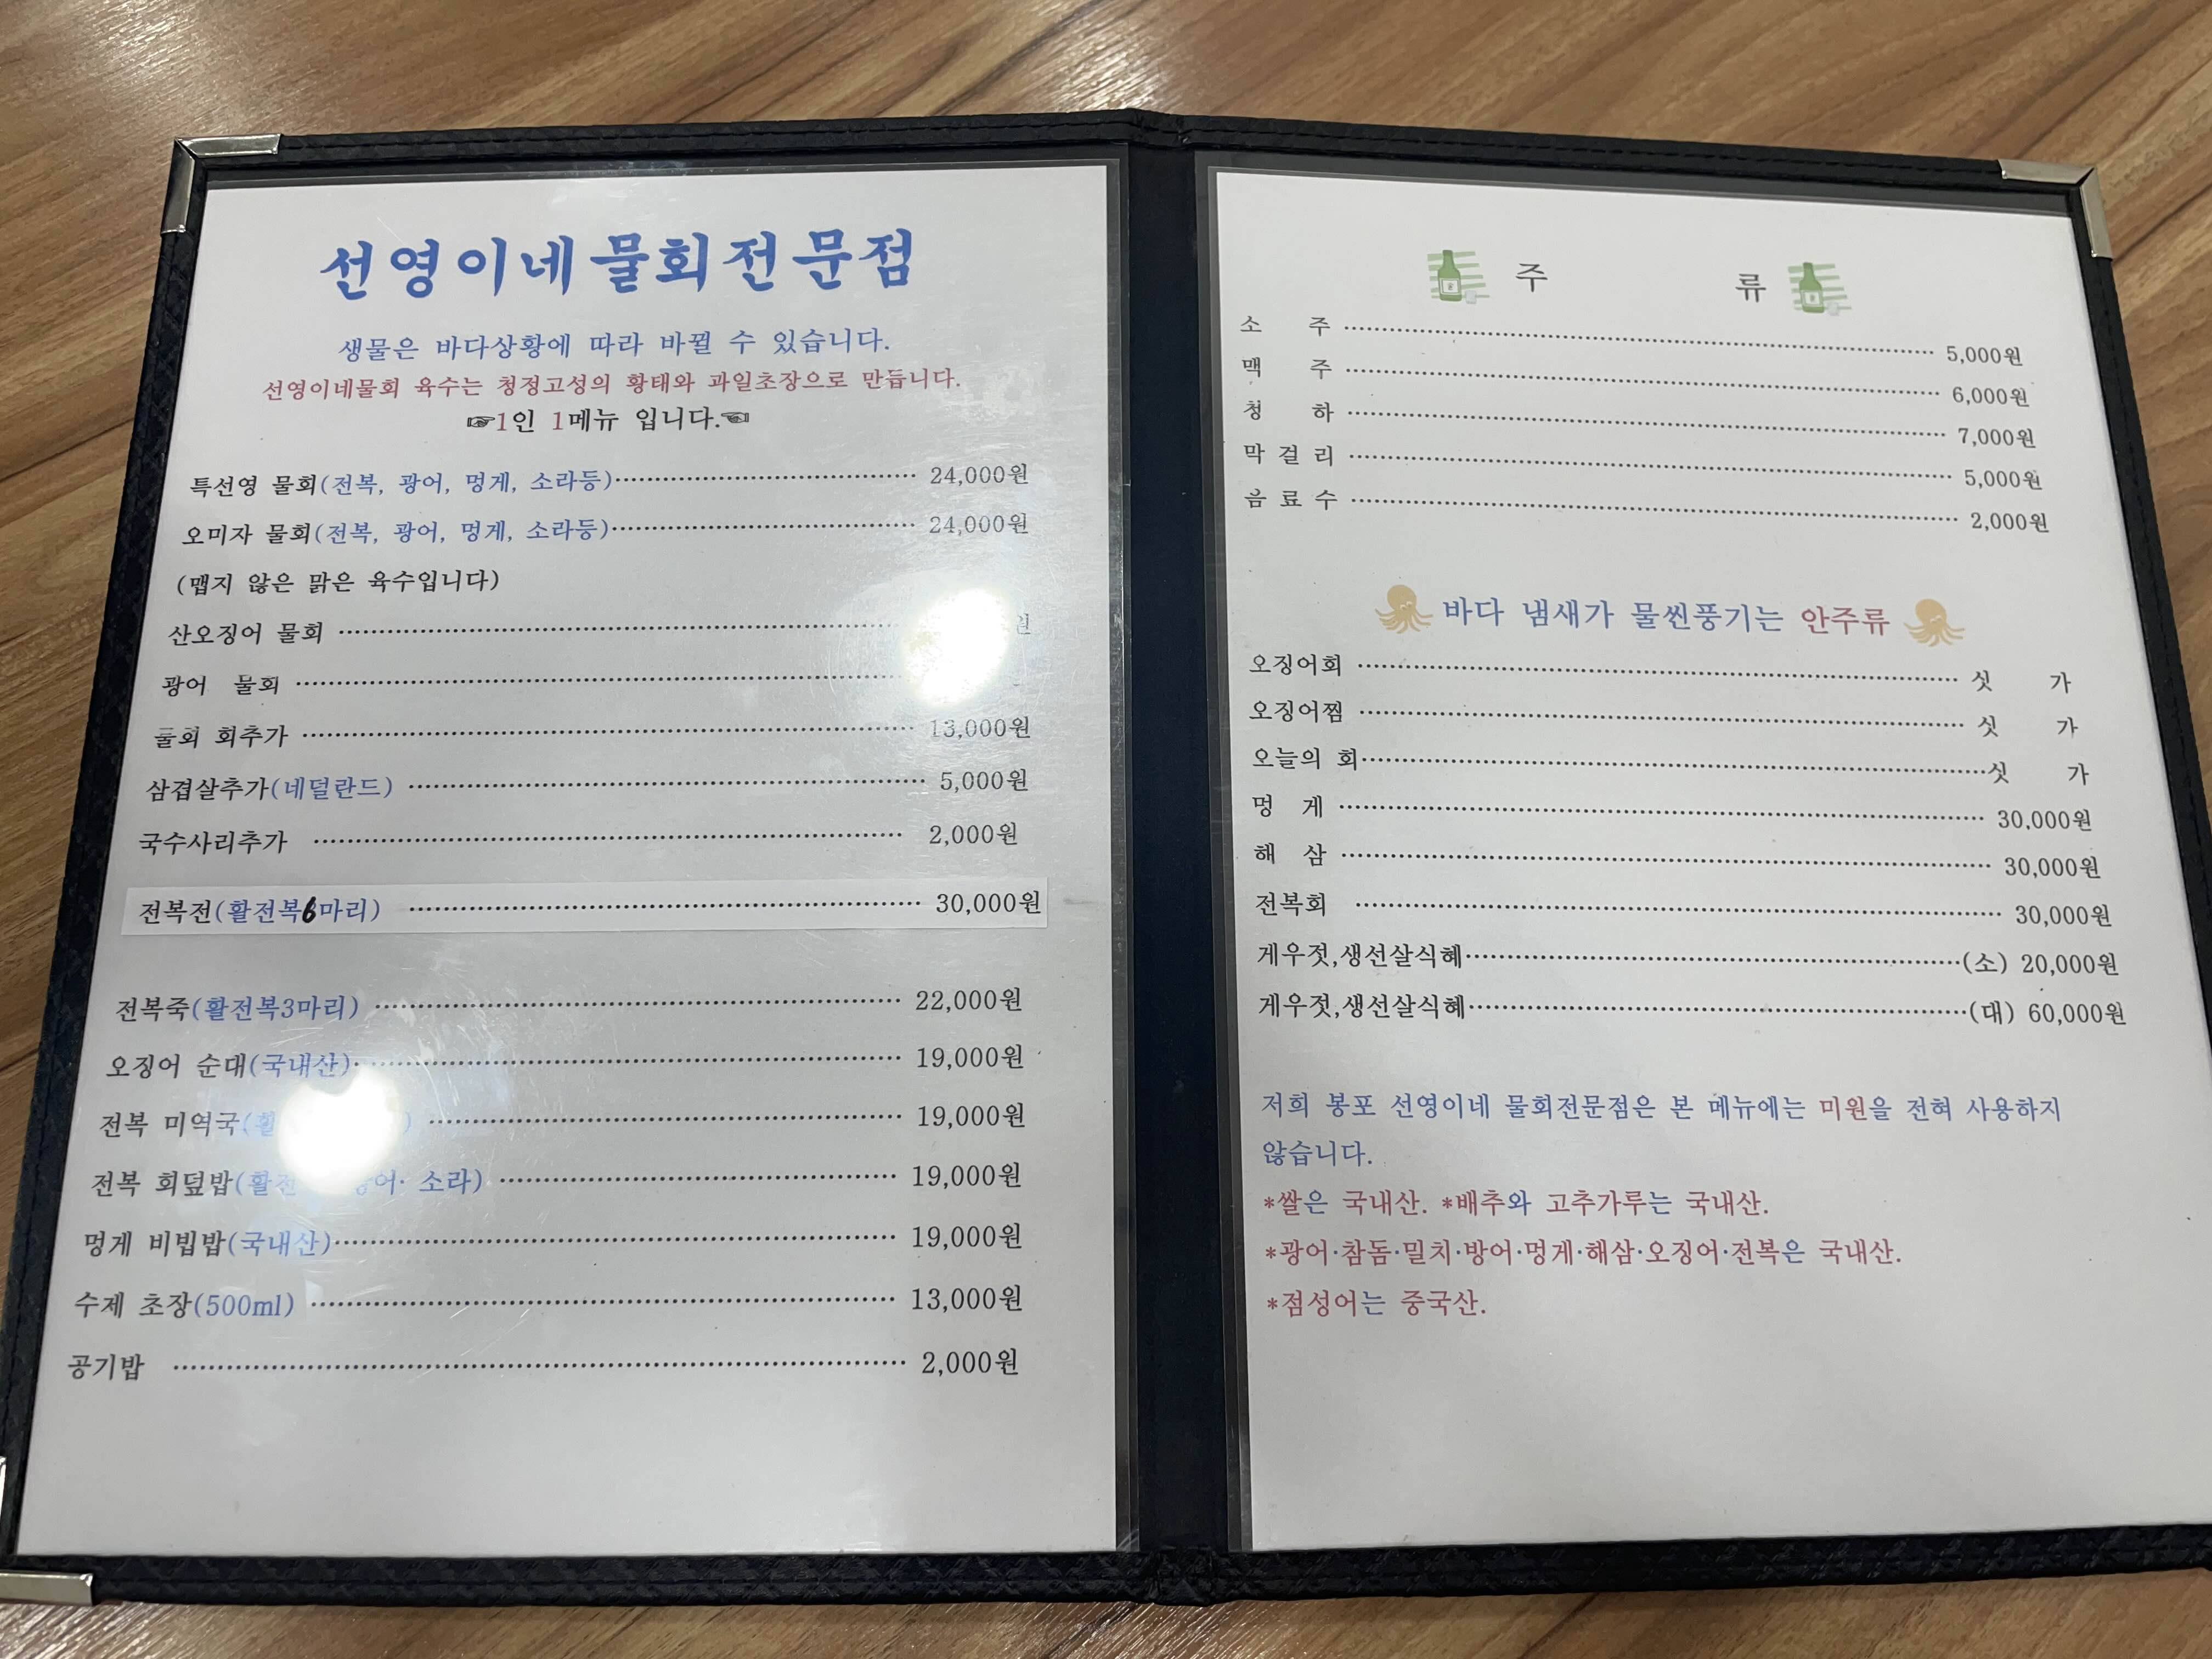 선영이네물회전문점
생물은 바다상황에 따라 바뀔 수 있습니다.
선영이네물회 육수는 청정고성의 황태와 과일초장으로 만듭니다.
☞1인 1메뉴 입니다.☜
특선영 물회(전복, 광어, 멍게, 소라등) 24,000원
오미자 물회(전복, 광어, 멍게, 소라등) 24,000원
(맵지 않은 맑은 육수입니다)
산오징어 물회 원
광어 물회
물회 회추가 13,000원
삼겹살추가(네덜란드) 5,000원
국수사리추가 2,000원
전복전(활전복6마리) 30,000원
전복죽(활전복3마리) 22,000원
오징어 순대(국내산) 19,000원
전복 미역국( 19,000원
전복 회덮밥( 소라) 19,000원
멍게 비빔밥(국내산) 19,000원
수제 초장(500ml) 13,000원
공기밥 2,000원
주 류
소 주 5,000원
맥 주 6,000원
청 하 7,000원
막 걸 리 5,000원
음 료 수 2,000원
바다 냄새가 물씬풍기는 안주류
오징어회 싯 가
오징어찜 싯 가
오늘의 회 싯 가
멍 게 30,000원
해 삼 30,000원
전복회 30,000원
게우젓,생선살식혜 (소) 20,000원
게우젓,생선살식혜 (대) 60,000원
저희 봉포 선영이네 물회전문점은 본 메뉴에는 미원을 전혀 사용하지
않습니다.
*쌀은 국내산. *배추와 고추가루는 국내산.
*광어·참돔·밀치·방어·멍게·해삼·오징어·전복은 국내산.
*점성어는 중국산.